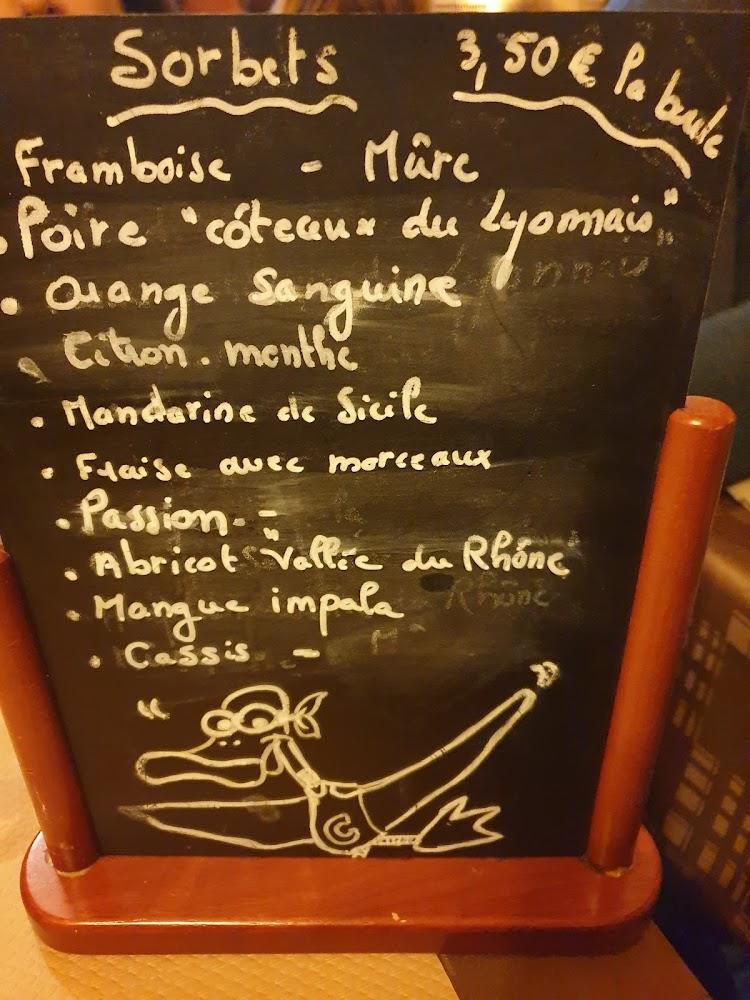 Sorbets 3,50 € la boule
Framboise - Mûre
• Poire "côteaux du Lyonnais"
• Orange Sanguine
• Citron. menthe
• Mandarine de Sicile
• Fraise avec morceaux
• Passion. -
• Abricot "Vallée du Rhône"
• Mangue impala
• Cassis -
"
C